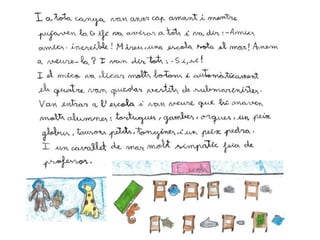 I a tota canya van anar cap amunt i mentre
pujaven la Gífc va avisar a tots i va dir: -Amics
amics. increïble! Mireu, una escola sota el mar! Anem
a veure-la? I van dir tots: -Sí, sí!
I el mico va clicar molts botons i automàticament
els quatre van quedar vestits de submarinistes.
Van entrar a l'escola i van veure que hi anaven
molts alumnes: tortugues, gambes, orques, un peix
globus, taurons petits, tonyines, i un peix pedra.
I un cavallet de mar molt simpàtic feia de
professor.